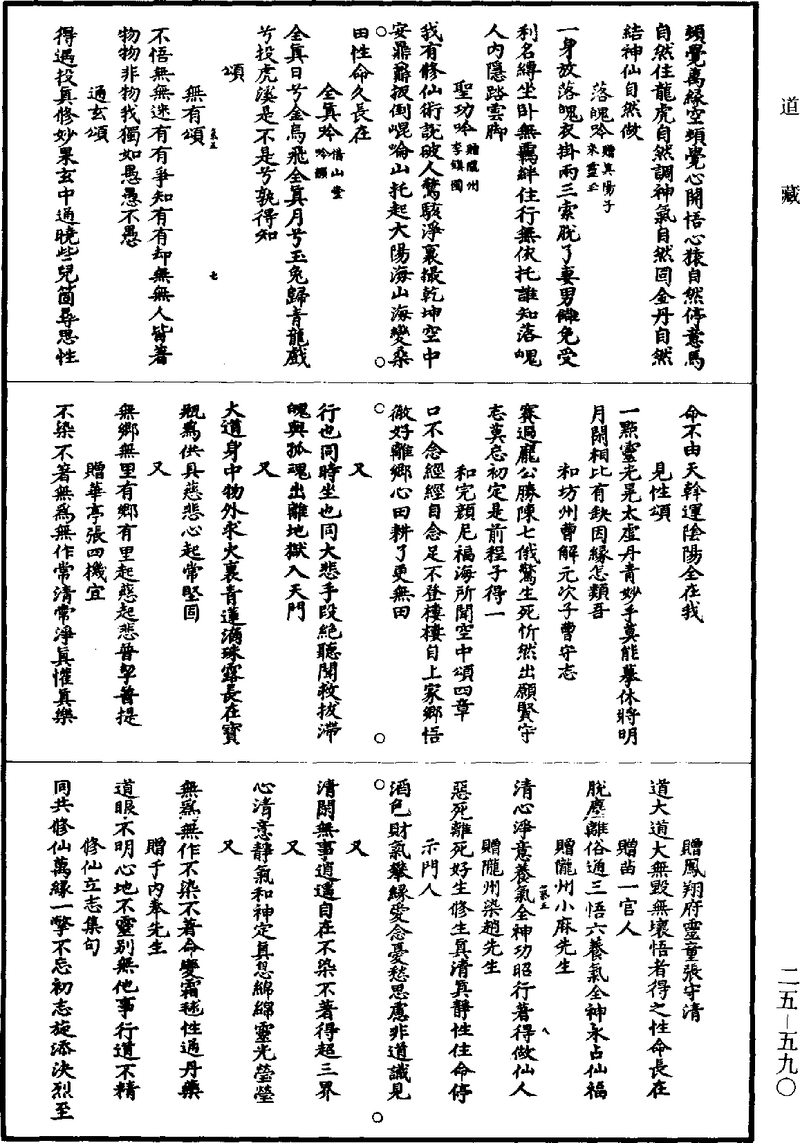 道藏
頭覺萬緣空頭覺心開悟心猿自然停意馬
自然住龍虎自然調神氣自然固金丹自然
結神仙自然做
落魄吟 贈真陽子 來靈玉
一身放落魄衣掛兩三索脫了妻男免受
利名縛坐臥無羈絆住行無依托誰知落魄
人內隱踏雲腳
聖功吟 贈隴州 李鎮國
我有修仙術說破人驚駭淨裏撮乾坤空中
安鼎鼐扳倒崐崘山托起大陽海山海變桑
田性命久長在
全真吟 悟山堂 吟韻
全真日兮金烏飛全真月兮玉兔歸青龍戲
兮投虎淺是不是兮孰得知
頌
無有頌
不悟無無迷有有爭知有有却無無人皆著
物物非物我獨如愚愚不愚
通玄頌
得遇投真修妙果玄中通曉些兒箇尋思性
七
命不由天幹運陰陽全在我
見性頌
一點靈光晃太虛丹青妙手莫能摹休將明
月閑相比有缺因緣怎類吾
和坊州曹解元次子曹守志
賽過龐公勝陳七俄驚生死忻然出願賢守
志莫忘初定是前程子得一
和完顏尼福海所聞空中頌四章
口不念經經自念足不登樓樓自上家鄉悟
徹好離鄉心田耕了更無田
又
行也同時坐也同大悲手段絕聽聞救拔滯
魄與孤魂出離地獄入天門
又
大道身中物外求火裏青蓮滴珠露長在寶
瓶為供具慈悲心起常堅固
又
無鄉無里有鄉有里起慈起悲普挈普提
贈華亭張四機宜
不染不著無為無作常清常淨真懽真樂
贈鳳翔府靈童張守清
道大道大無毀無壞悟者得之性命長在
贈苗一官人
脫塵離俗通三悟六養氣全神永占仙福
贈隴州小麻先生
清心淨意養氣全神功昭行著得做仙人
贈隴州染趙先生
惡死離死好生修生真清真靜性住命停
示門人
酒色財氣攀緣愛念憂愁思慮非道識見
又
清閑無事逍遙自在不染不著得超三界
又
心清意靜氣和神定真息綿綿靈光瑩瑩
又
無為無作不染不著命變霜毬性通丹藥
贈于內奉先生
道眼不明心地不靈別無他事行道不精
修仙立志集句
同共修仙萬緣一擎不忘初志旋添決烈至
八
二五—五九〇